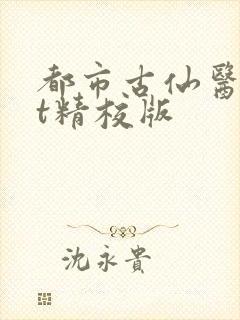 都市古仙醫
t精校版
沈永貴